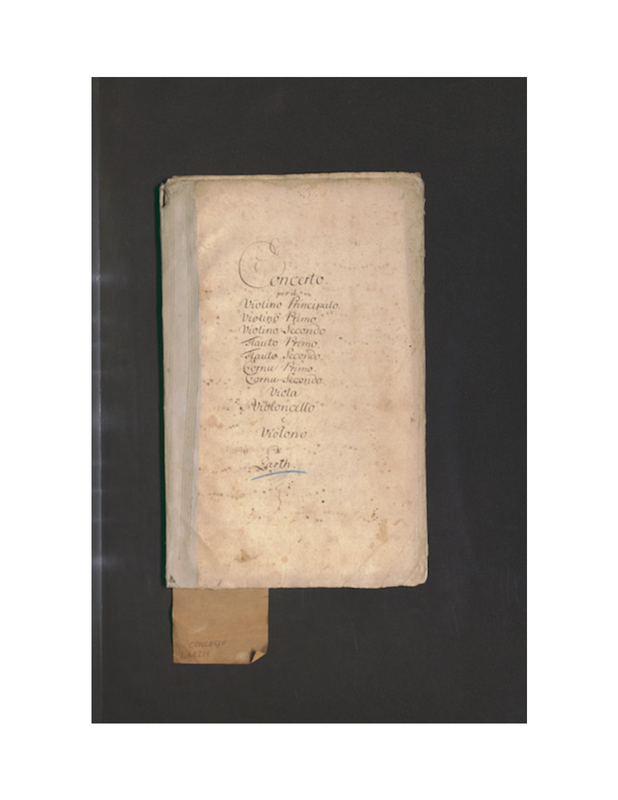 Concerto.
per il
Violino Principale.
Violino Primo
Violino Secondo
Flauto Primo.
Flauto Secondo
Cornu Primo.
Cornu Secondo
Viola
Violoncello
e
Violono
Larth.
CONCERTO
LARTH